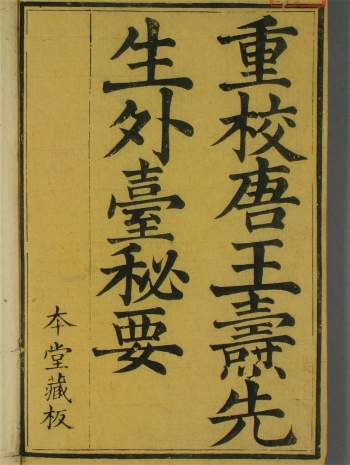 重校唐王燾先
生外臺秘要
本堂藏板